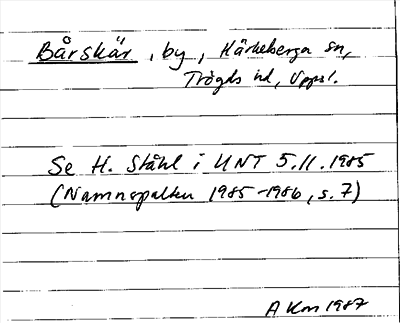 Bårskär, by, Härkeberga sn,
Trögds hd, Uppl.
Se H. Ståhl i UNT 5.11.1985
(Namnspalten 1985-1986, s. 7)
A Km 1987